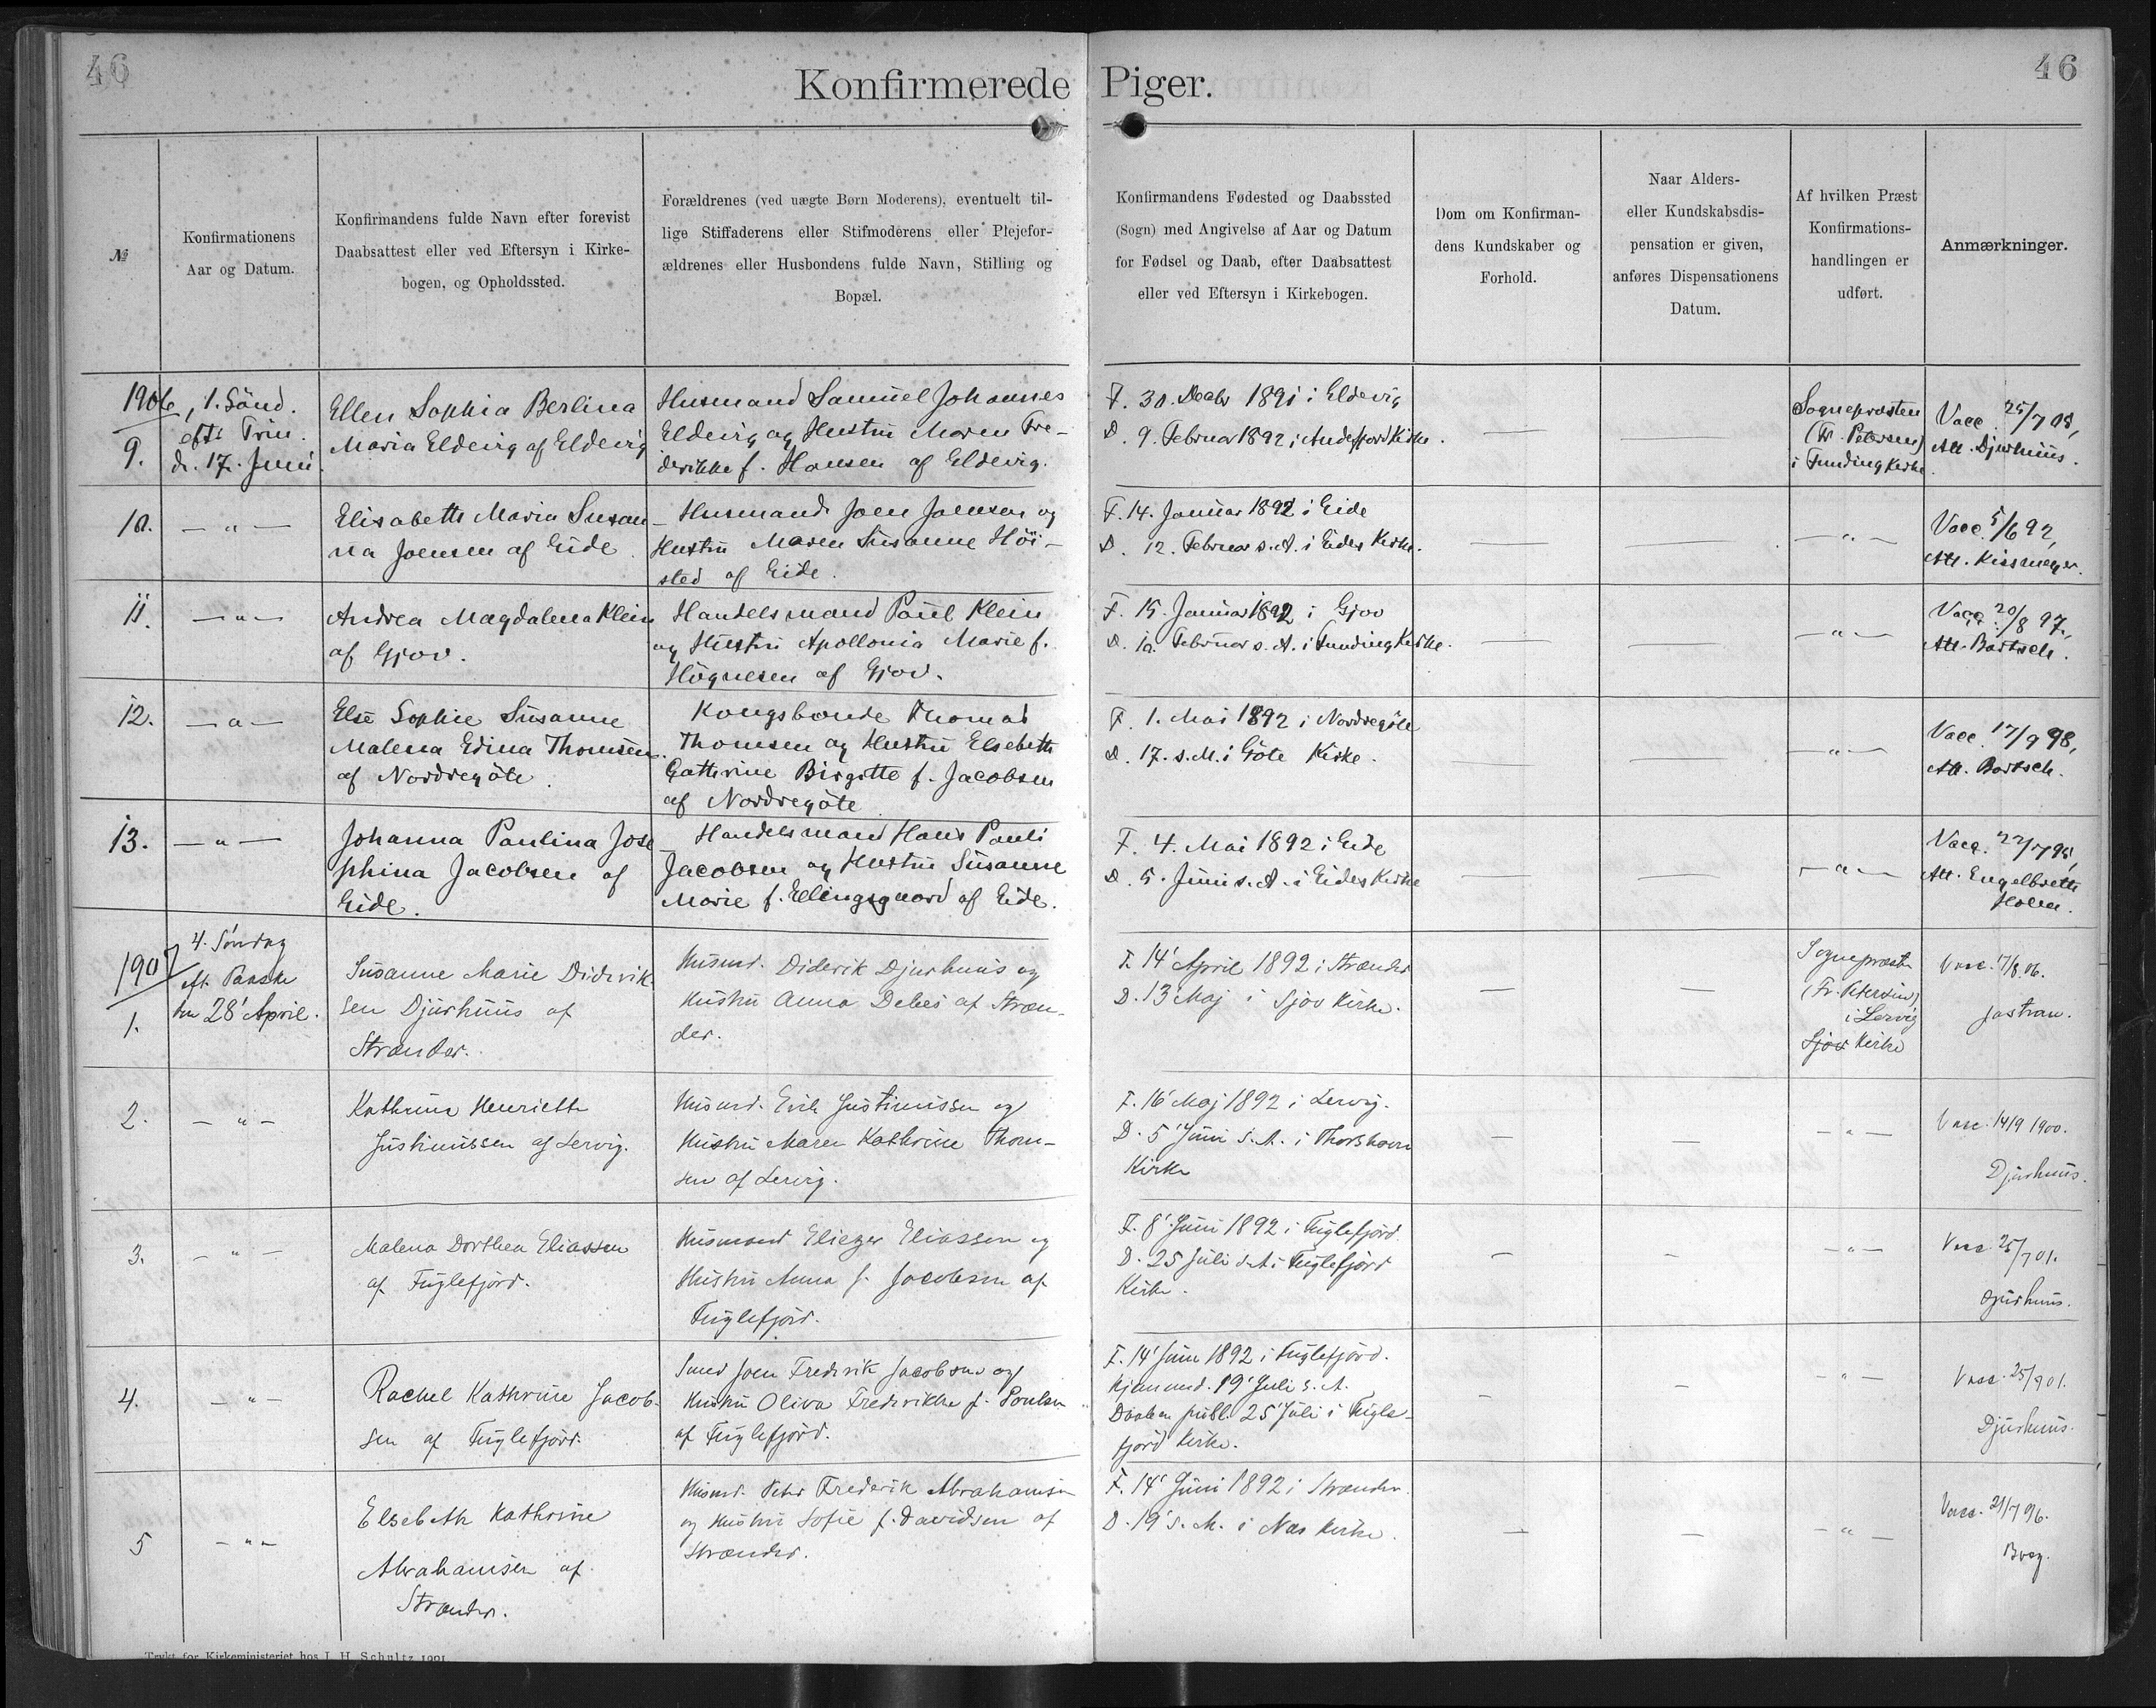 46
46
Konfirmerede Piger.
№
Konfirmationens
Aar og Datum.
Konfirmandens fulde Navn efter forevist
Daabsattest eller ved Eftersyn i Kirke-
bogen, og Opholdssted.
Forældrenes (ved uægte Børn Moderens), eventuelt til-
lige Stiffaderens eller Stifmoderens eller Plejefor-
ældrenes eller Husbondens fulde Navn, Stilling og
Bopæl.
Konfirmandens Fødested og Daabssted
(Sogn) med Angivelse af Aar og Datum
for Fødsel og Daab, efter Daabsattest
eller ved Eftersyn i Kirkebogen.
Dom om Konfirman-
dens Kundskaber og
Forhold.
Naar Alders-
eller Kundskabsdis-
pensation er given,
anføres Dispensationens
Datum.
Af hvilken Præst
Konfirmations-
handlingen er
udført.
Anmærkninger.
1906
9.
, 1. Sönd.
eft. Trin.
d. 17. Juni
Ellen Sophia Berlina
Maria Eldevig af Eldevig
Husmand Samuel Johannes
Eldevig og Hustru Maren Fre-
derikke f. Hansen af Eldevig.
F. 30. Decbr 1891 i Eldevig
D. 9. Februar 1892 i Andefjord Kirke.
—
—
Sognepræsten
(Fr. Petersen)
i Funding Kirke
Vacc. 25/7 08,
Att. Djurhuus.
10.
— " —
Elisabeth Maria Susan-
na Joensen af Eide.
Husmand Joen Joensen og
Hustru Maren Susanne Höi-
sted af Eide.
F. 14. Januar 1892 i Eide
D. 12. Februar s. A. i Eides Kirke.
—
—
— " —
Vacc. 5/6 92,
Att. Kissmeyer.
11.
— " —
Andrea Magdalena Klein
af Gjov.
Handelsmand Paul Klein
og Hustru Apollonia Marie f.
Högnesen af Gjov.
F. 15. Januar 1892 i Gjov
D. 10. Februar s. A. i Funding Kirke.
—
—
— " —
Vacc. 20/8 97,
Att. Bartsch.
12.
— " —
Else Sophie Susanne
Malena Edina Thomsen
af Nordregöte.
Kongsbonde Thomas
Thomsen og Hustru Elsebeth
Cathrine Birgitte f. Jacobsen
af Nordregöte
F. 1. Mai 1892 i Nordregöte
D. 17. s. M. i Göte Kirke.
—
—
— " —
Vacc. 17/9 98,
Att. Bartsch.
13.
— " —
Johanna Paulina Jose-
phina Jacobsen af
Eide.
Handelsmand Hans Pauli
Jacobsen og Hustru Susanne
Marie f. Ellingsgaard af Eide.
F. 4. Mai 1892 i Eide
D. 5. Juni s. A. i Eides Kirke
—
—
— " —
Vacc. 22/7 95,
Att. Engelbreth
Holm.
1907
1.
4. Söndag
eft. Paaske
den 28' April.
Susanne Marie Didrik-
sen Djurhuus af
Strænder.
Husmd. Diderik Djurhuus og
Hustru Anna Debes af Stræn-
der.
F. 14' April 1892 i Strænder
D. 13' Maj i Sjov Kirke.
—
—
Sognepræst
(Fr. Petersen)
i Lervig
Sjov Kirke
Vacc. 17/8 06.
Jastrau.
2.
— " —
Kathrine Henriette
Justinussen af Lervig.
Husmd. Erik Justinussen og
Hustru Maren Kathrine Thom-
sen af Lervig.
F. 16' Maj 1892 i Lervig.
D. 5' Juni s. A. i Thorshavn
Kirke
—
—
— " —
Vacc. 14/9 1900.
Djurhuus.
3.
— " —
Malena Dorthea Eliassen
af Fuglefjord.
Husmand Eliezer Eliassen og
Hustru Anna f. Jacobsen af
Fuglefjord.
F. 8' Juni 1892 i Fuglefjord.
D. 25 Juli s. A i Fuglefjord
Kirke.
—
—
— " —
Vacc. 25/7 01.
Djurhuus.
4.
— " —
Rachel Kathrine Jacob-
sen af Fuglefjord.
Smed Joen Fredrik Jacobsen og
Hustru Oliva Fredrikke f. Poulsen
af Fuglefjord.
F. 14' Juni 1892 i Fuglefjord.
Hjemmed. 19' Juli s. A.
Daaben publ. 25 Juli i Fugle-
fjord Kirke.
—
—
— " —
Vacc. 25/9 01.
Djurhuus.
5
— " —
Elsebeth Kathrine
Abrahamsen af
Strænder.
Husmd. Peter Frederik Abrahamsen
og Hustru Sofie f. Davidsen af
Strænder.
F. 14' Juni 1892 i Strænder.
D. 19' s. M. i Nas Kirke.
—
—
— " —
Vacc. 21/7 96.
Trykt for Kirkeministeriet hos J. H. Schultz 1901